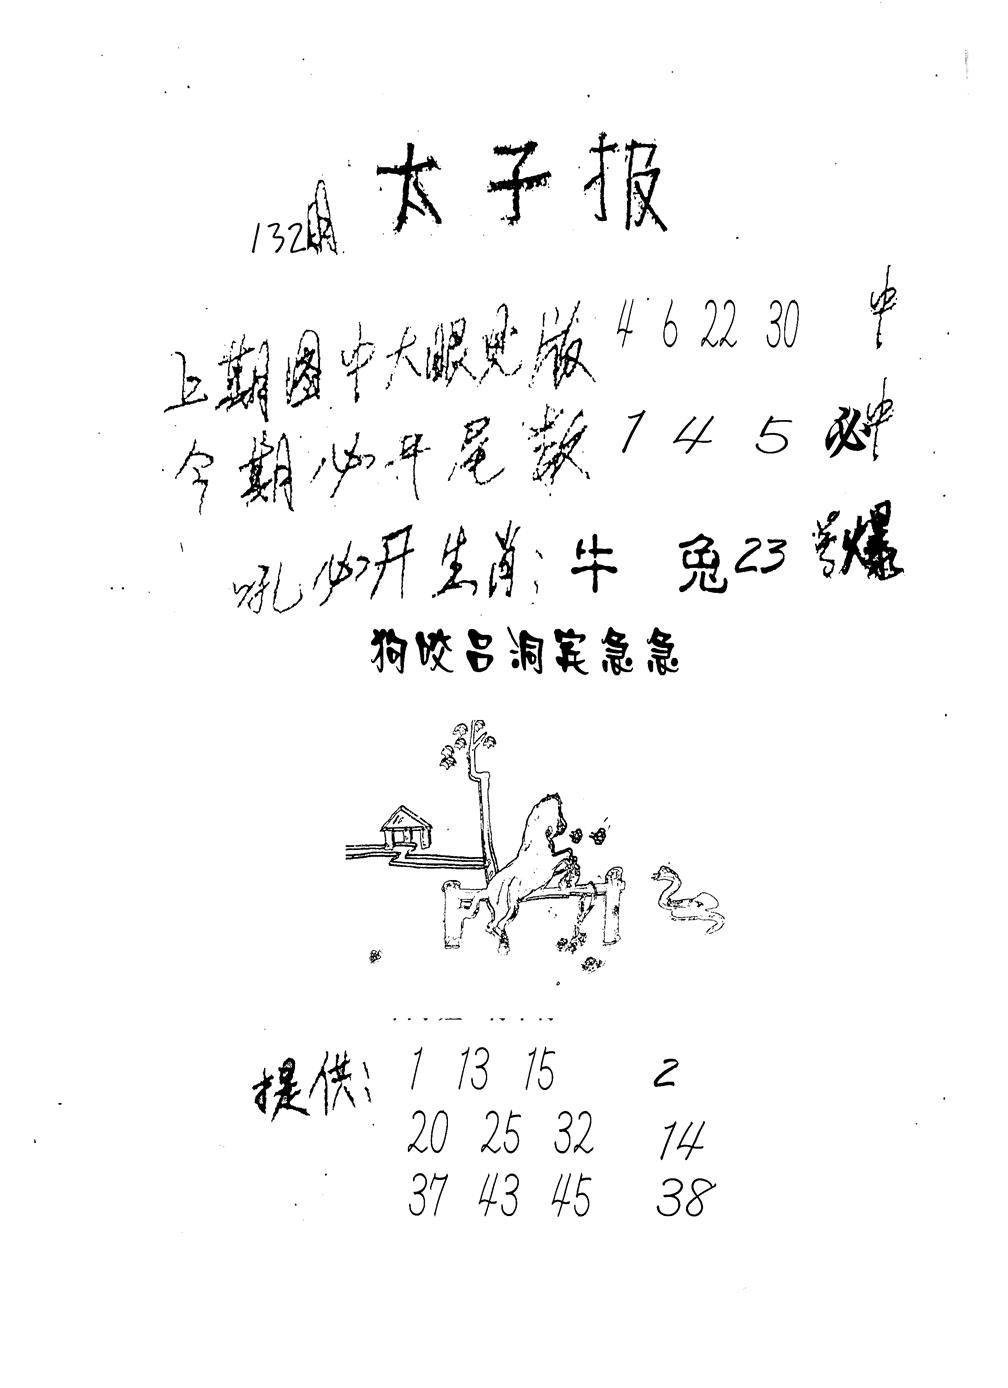 太子报
132期
上期图中大眼见版 4 6 22 30 中
今期必开尾数 1 4 5 必中
吼必开生肖: 牛 兔 23 号爆
狗咬吕洞宾急急
提供: 1 13 15 2
20 25 32 14
37 43 45 38